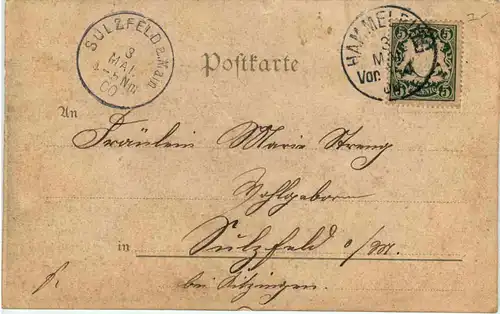 SULZFELD a. Main
3
MAI.
4-5 Nm
00
Postkarte
HAMMELBURG
3
M
Vor.
00
5 5
An
Fräulein Marie Streng
Wohlgeboren
in Sulzfeld a/M.
bei Kitzingen.